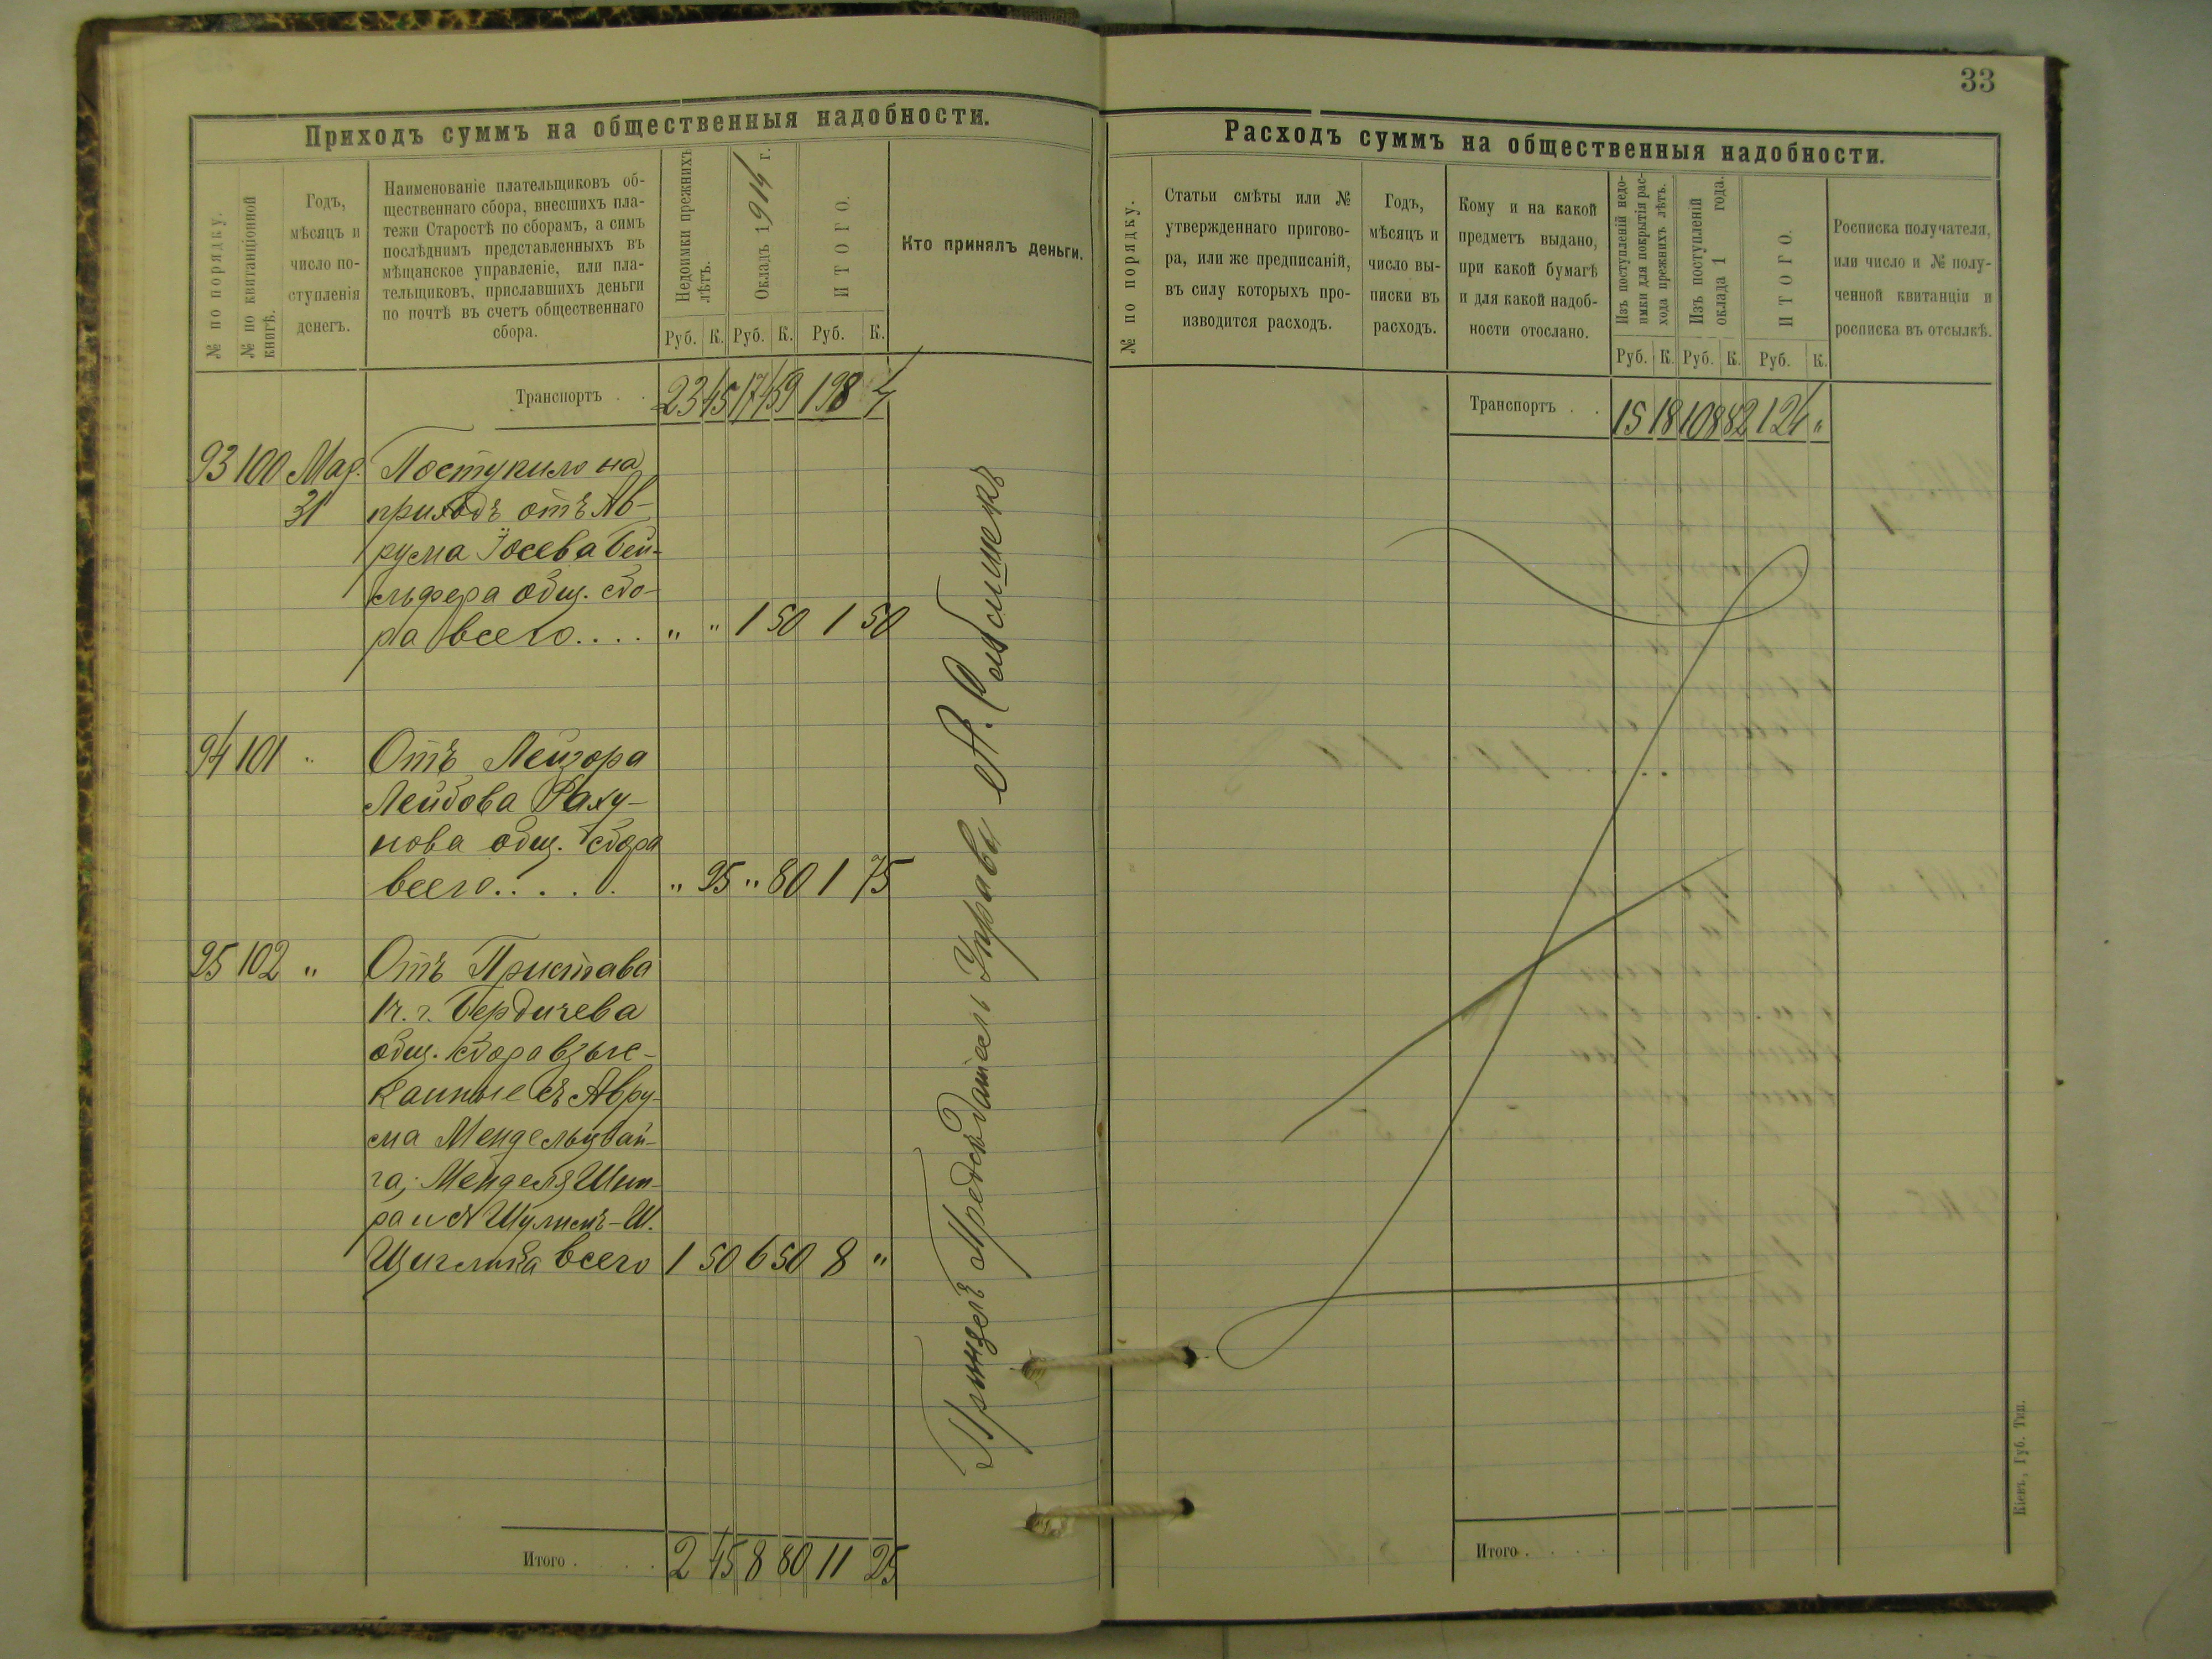 33
Приходъ суммъ на общественныя надобности.
№ по порядку.
№ по квитанціонной книгѣ.
Годъ,
мѣсяцъ и
число по-
ступленія
денегъ.
Наименованіе плательщиковъ об-
щественнаго сбора, внесшихъ пла-
тежи Старостѣ по сборамъ, а симъ
послѣднимъ представленныхъ въ
мѣщанское управленіе, или пла-
тельщиковъ, приславшихъ деньги
по почтѣ въ счетъ общественнаго
сбора.
Недоимки прежнихъ лѣтъ.
Окладъ 1914 г.
ИТОГО.
Кто принялъ деньги.
Руб. К. Руб. К. Руб. К.
Транспортъ . . 23 45 174 59 198 4
93 100 Мар. Поступило на
31 приходъ отъ Ав-
рума Іосева Бей-
льфера общ. сбо-
ра всего.... " " 1 50 1 50
94 101 " Отъ Лейзора
Лейбова Раху-
нова общ. сбора
всего..... " 95 " 80 1 75
95 102 " Отъ Пристава
1 ч. г. Бердичева
общ. сбора взыс-
канные съ Авру-
ма Мендельцвай-
га; Менделя Шпи-
ра и Шулимъ-Ш.
всего 1 50 6 50 8 "
Итого . . . 2 45 8 80 11 25
Предсѣдатель Управы А.
Расходъ суммъ на общественныя надобности.
№ по порядку.
Статьи смѣты или №
утвержденнаго пригово-
ра, или же предписаній,
въ силу которыхъ про-
изводится расходъ.
Годъ,
мѣсяцъ и
число вы-
писки въ
расходъ.
Кому и на какой
предметъ выдано,
при какой бумагѣ
и для какой надоб-
ности отослано.
Изъ поступленій недо-
имки для покрытія рас-
хода прежнихъ лѣтъ.
Изъ поступленій
оклада 1 года.
ИТОГО.
Росписка получателя,
или число и № полу-
ченной квитанціи и
росписка въ отсылкѣ.
Руб. К. Руб. К. Руб. К.
Транспортъ . . 15 18 108 82 124 "
Итого . . .
Кіевъ, Губ. Тип.